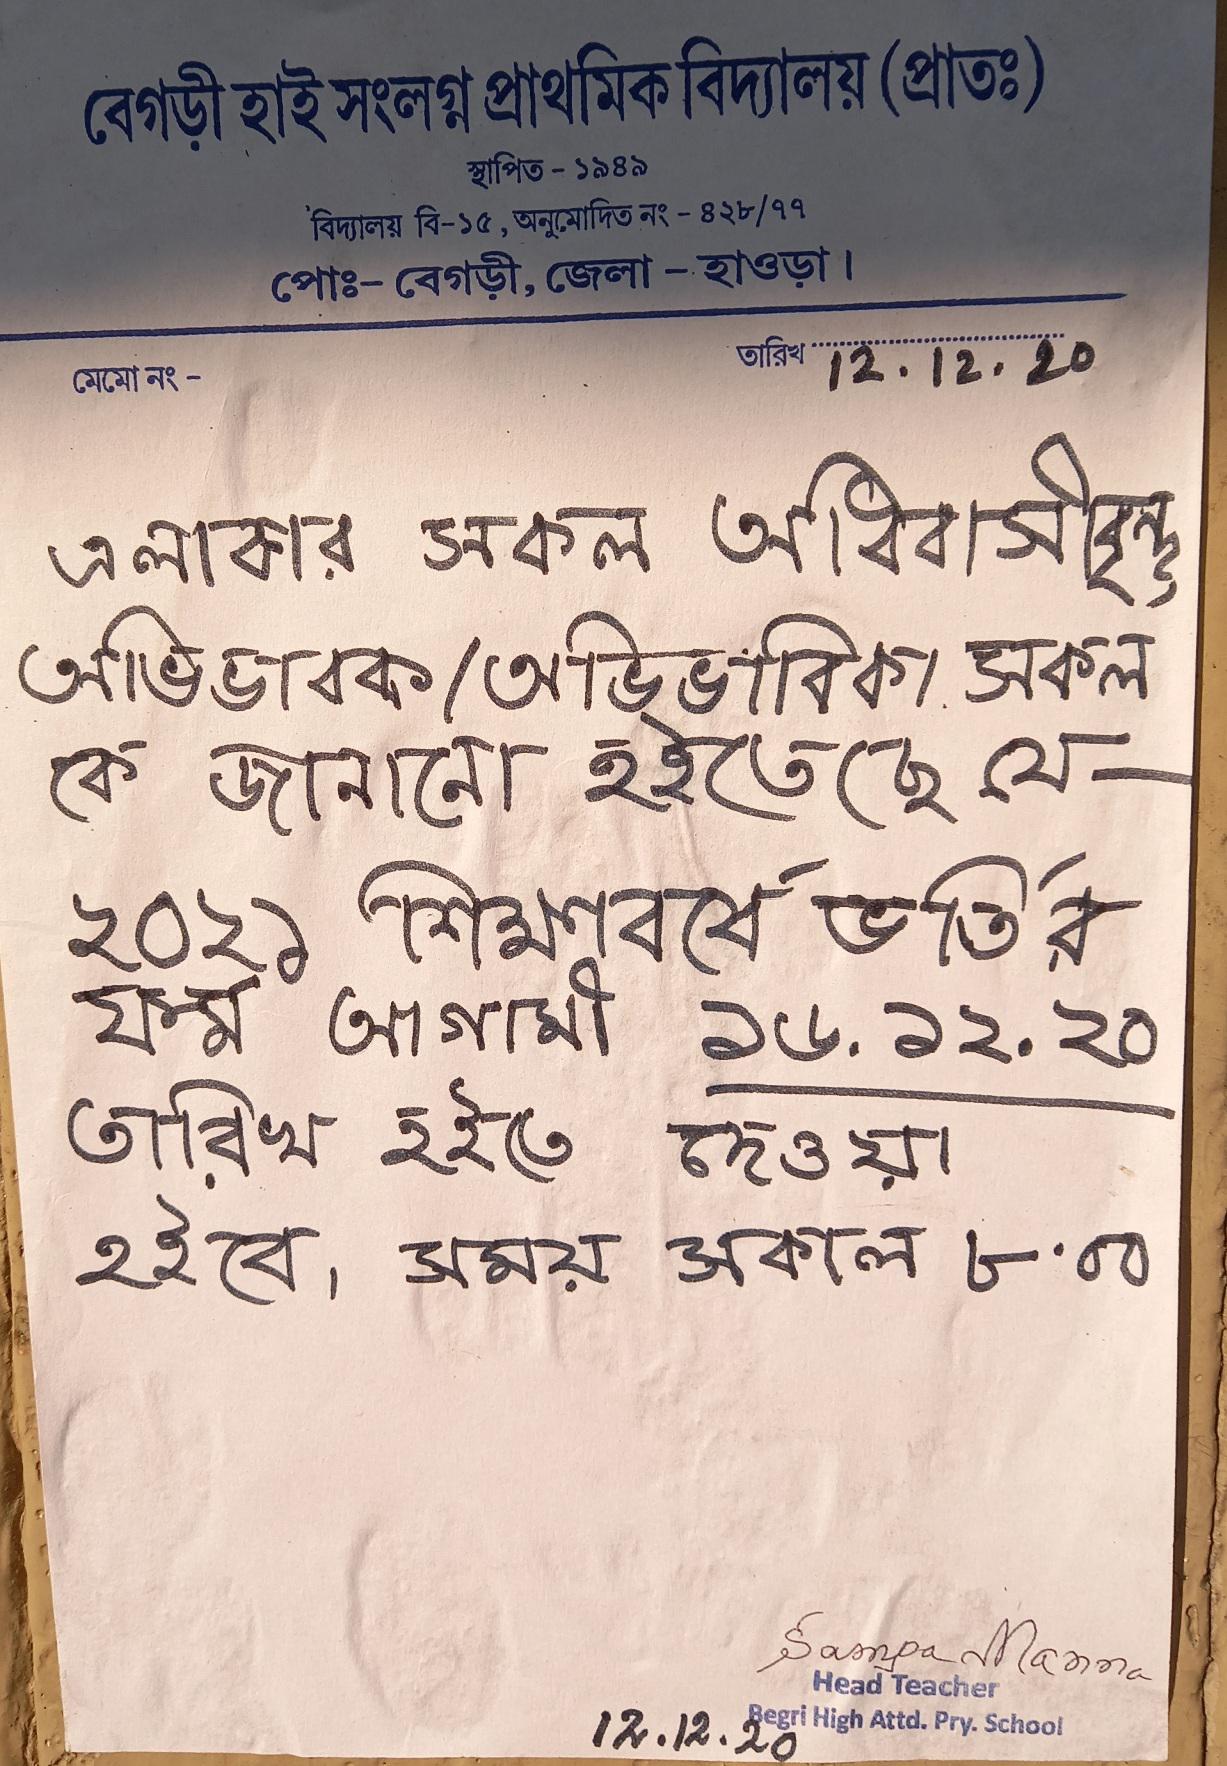 বেগড়ী হাই সংলগ্ন প্রাথমিক বিদ্যালয় (প্রাতঃ)
স্থাপিত - ১৯৪৯
বিদ্যালয় বি-১৫, অনুমোদিত নং - ৪২৮/৭৭
পোঃ- বেগড়ী, জেলা - হাওড়া।
তারিখ 12.12.20
মেমো নং -
এলাকার সকল অধিবাসীবৃন্দ
অভিভাবক/অভিভাবিকা সকল
কে জানানো হইতেছে যে—
২০২১ শিক্ষাবর্ষে ভর্তির
ফর্ম্ম আগামী ১৬.১২.২০
তারিখ হইতে দেওয়া
হইবে। সময় সকাল ৮.০০
Sampa Manna
Head Teacher
Begri High Attd. Pry. School
12.12.20